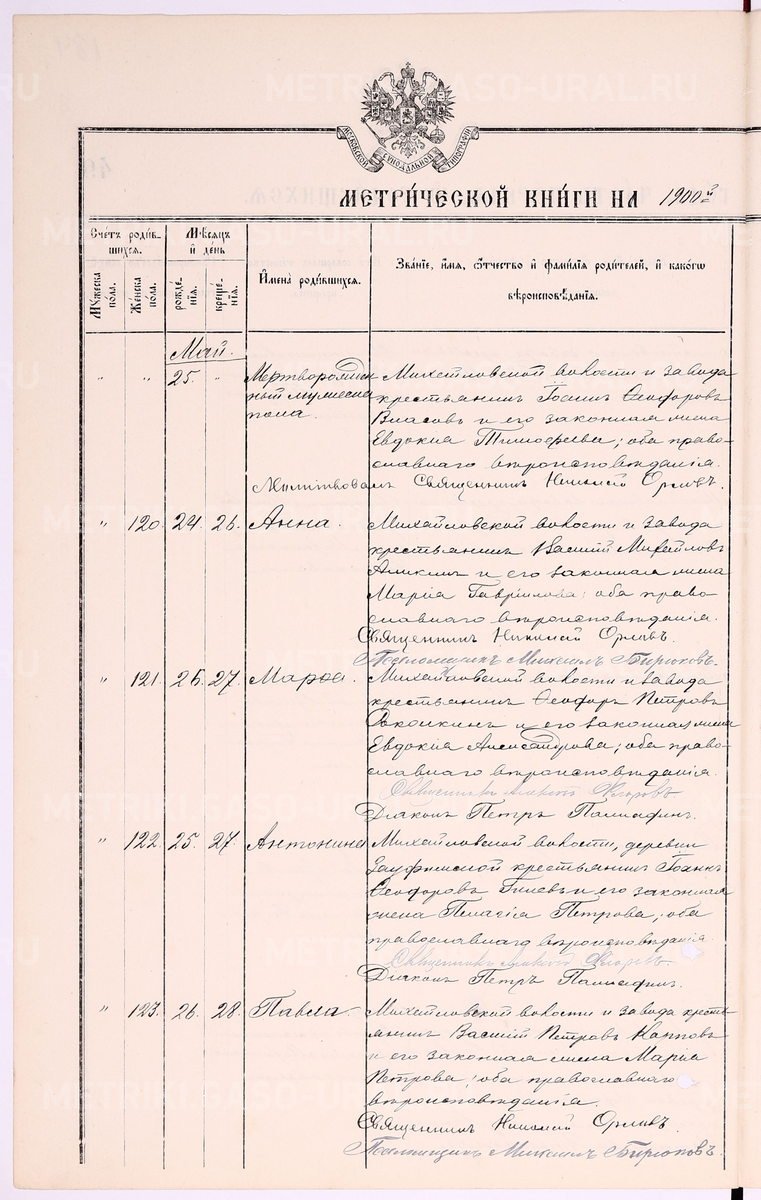 МОСКОВСКОЙ СѴНОДАЛЬНОЙ ТИПОГРАФІИ
МЕТРИ́ЧЕСКОЙ КНИ́ГИ НА 1900й
Счетъ роди́вшихсѧ. Мѣсяцъ и день Имена роди́вшихсѧ. Зва́ніе, и́мя, ѻ́тчество и фами́лія роди́телей, и како́гѡ вѣроисповѣ́данія.
Мꙋжеска по́ла. Же́нска по́ла. рожде́нія. креще́нія.
Май.
" " 25. " Мертворожден
ный мужеска
пола.
Михайловской волости и завода
крестьянинъ Іоаннъ Ѳеодоровъ
Власовъ и его законная жена
Евдокія Тимоѳеева; оба право-
славнаго вѣроисповѣданія.
Молитвовалъ Священникъ Николай Орловъ.
" 120. 24. 26. Анна. Михайловской волости и завода
крестьянинъ Василій Михайловъ
Аликинъ и его законная жена
Марія Гавріилова; оба право-
славнаго вѣроисповѣданія.
Священникъ Николай Орловъ.
Псаломщикъ Михаилъ Бирюковъ.
" 121. 26. 27. Марѳа. Михайловской волости и завода
крестьянинъ Ѳеодоръ Петровъ
и его законная жена
Евдокія Александрова; оба право-
славнаго вѣроисповѣданія.
Священникъ Алексій
Діаконъ Петръ
" 122. 25. 27. Антонина Михайловской волости, деревни
Зауфимской крестьянинъ Іоаннъ
Ѳеодоровъ Гилевъ и его законная
жена Пелагія Петрова; оба
православнаго вѣроисповѣданія.
Священникъ Алексій
Діаконъ Петръ
" 123. 26. 28. Павла. Михайловской волости и завода кресть-
янинъ Василій Петровъ Карповъ
и его законная жена Марія
Петрова; оба православнаго
вѣроисповѣданія.
Священникъ Николай Орловъ.
Псаломщикъ Михаилъ Бирюковъ.
METRIKI.GASO-URAL.RU